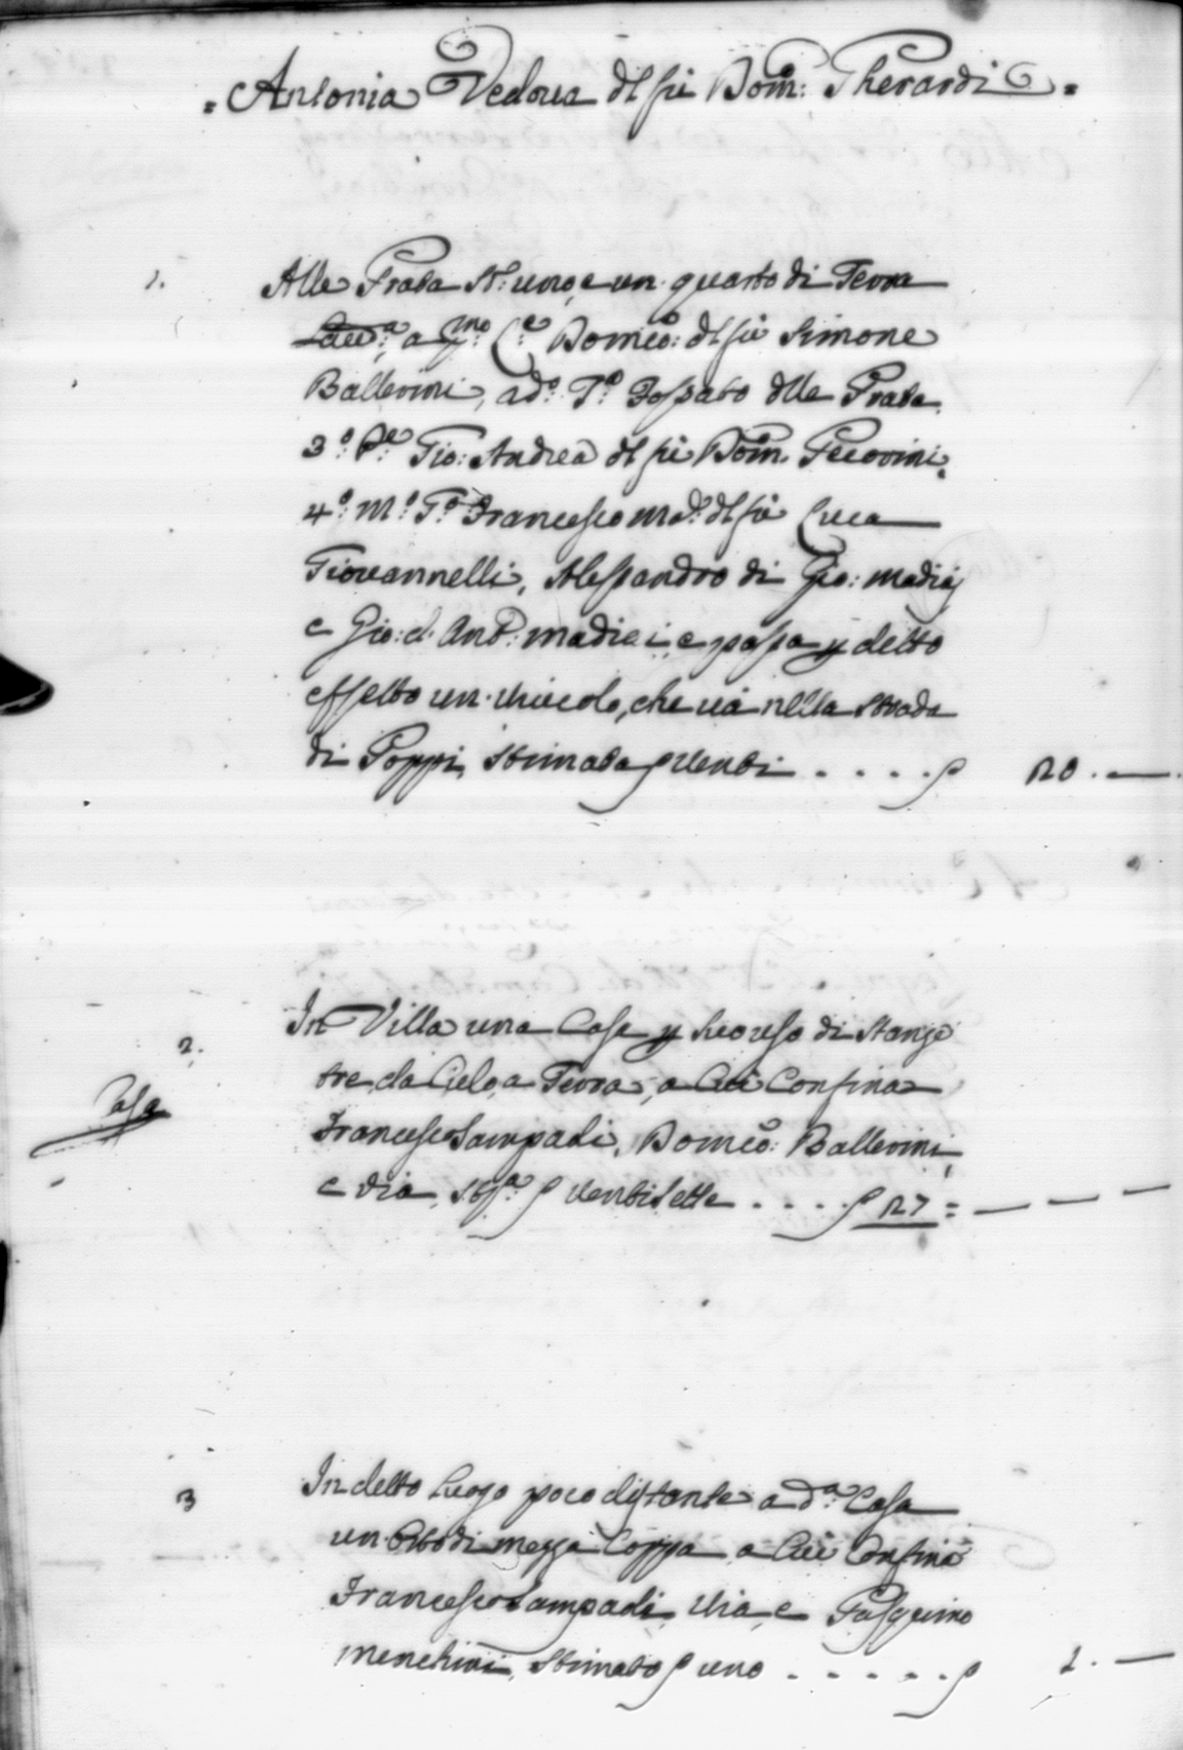 = Antonia Vedova dl fù Dom: Gherardi =
1. Alle Prata St: uno, e un quarto di Terra
Lau:ª, a p:mo C:e Domco: dl fù Simone
Ballerini, ad:o T:o Fossato dlle Prata
3:o P:e Gio: Andrea dl fù Dom: Pecorini,
4:o M:o T:o Francesco Ma: dl fù Luca
Giovannelli, Alessandro di Gio: Madiaj
e Gio: d: Ant: Madiai, e passa p detto
effetto un viucolo, che uà nella strada
di Poppi, stimata S venti . . . . S 20. —
2. In Villa una Casa p suo uso di Stanze
tre, da Cielo, a Terra, a Cui Confina
Casa
Francesco Lampadi, Domco: Ballerini,
e via, st:ª S ventisette . . . . S 27 = — — —
3 In detto Luogo poco distante a d:ª Casa
un Orto di mezza Coppa a Cui Confina
Francesco Lampadi, via, e Pasquino
Menchini, stimato S uno . . . . . . S 1. —